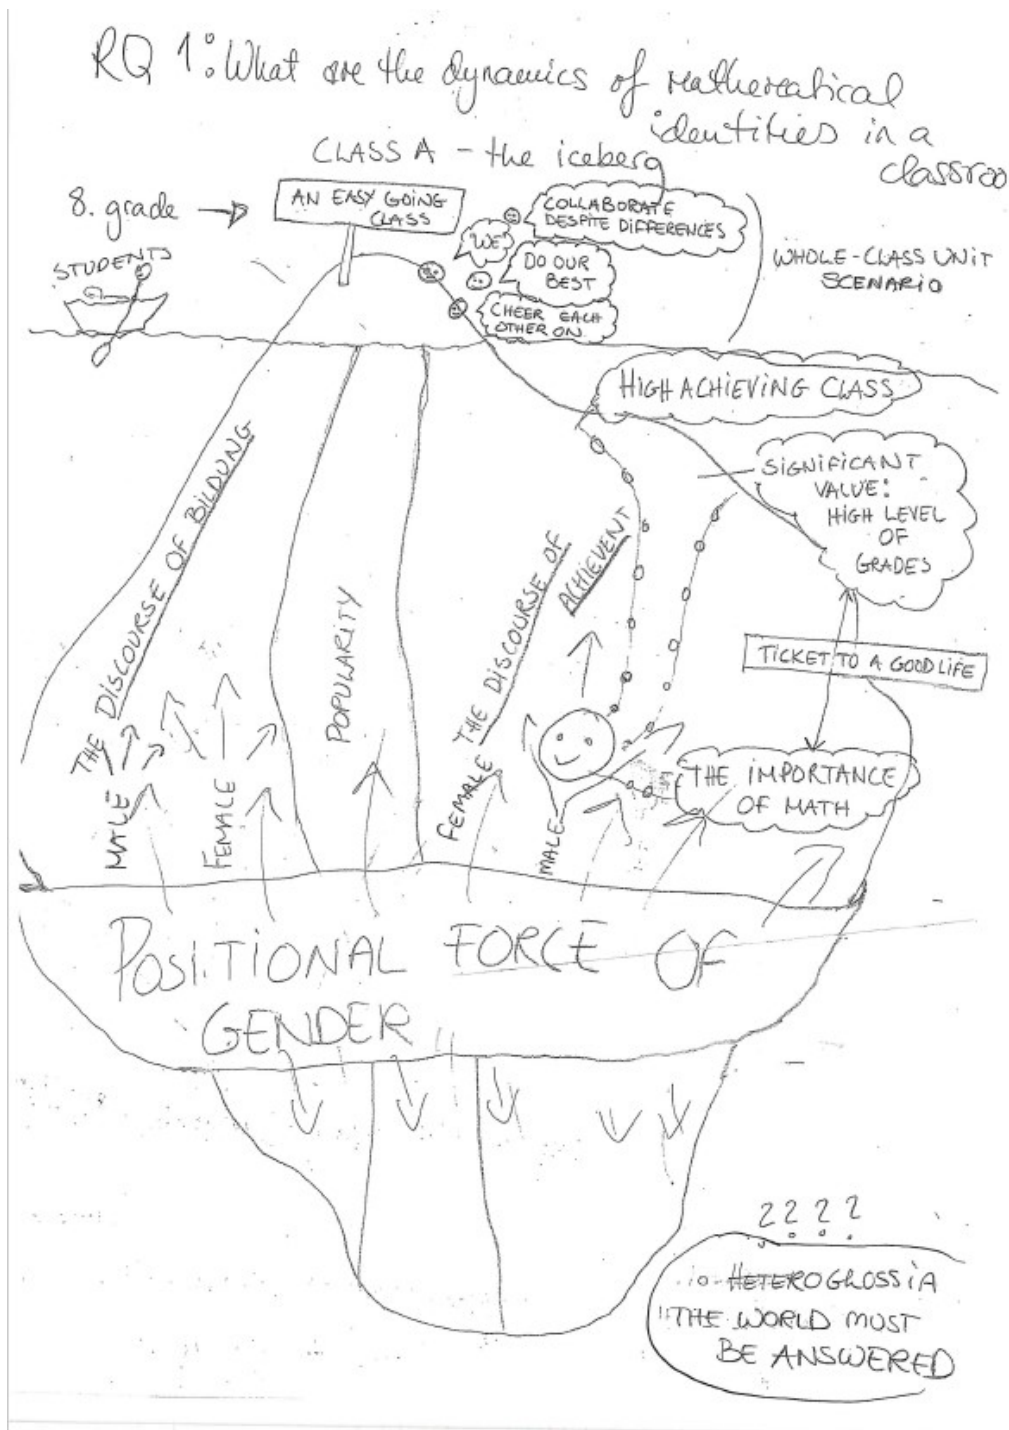 RQ 1: What are the dynamics of mathematical
identities in a
classroo
CLASS A - the iceberg
8. grade
AN EASY GOING
CLASS
STUDENTS
"WE"
COLLABORATE
DESPITE DIFFERENCES
DO OUR
BEST
CHEER EACH
OTHER ON
WHOLE-CLASS UNIT
SCENARIO
HIGH ACHIEVING CLASS
SIGNIFICANT
VALUE:
HIGH LEVEL
OF
GRADES
TICKET TO A GOOD LIFE
THE IMPORTANCE
OF MATH
THE DISCOURSE OF BILDUNG
MALE
FEMALE
POPULARITY
THE DISCOURSE OF
ACHIEVENT
FEMALE
MALE
POSITIONAL FORCE OF
GENDER
????
HETEROGLOSSIA
"THE WORLD MUST
BE ANSWERED